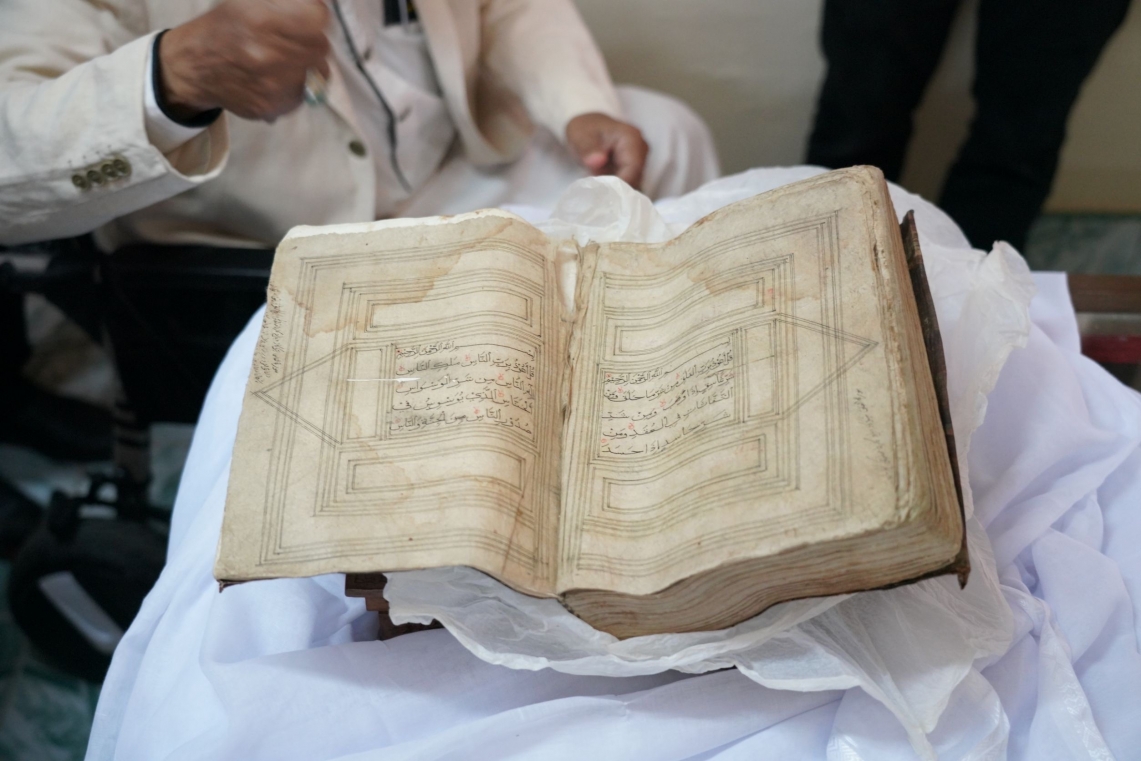 بسم الله الرحمن الرحيم
قل اعوذ برب الفلق من شر ما خلق ومن
شر غاسق اذا وقب ومن شر
النفاثات في العقد ومن
شر حاسد اذا حسد
بسم الله الرحمن الرحيم
قل اعوذ برب الناس ملك الناس
اله الناس من شر الوسواس
الخناس الذي يوسوس في
صدور الناس من الجنة والناس